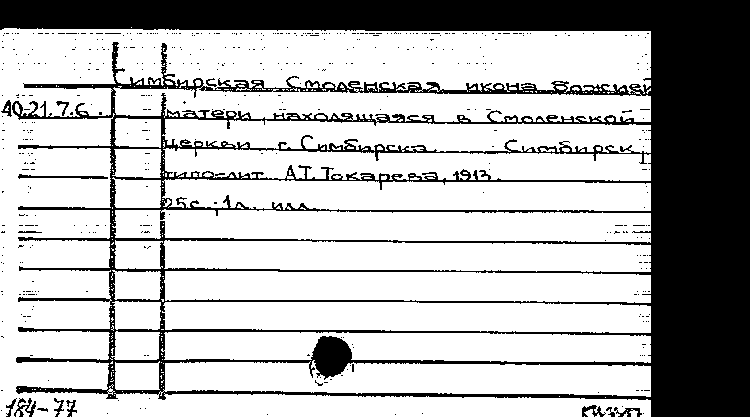 Симбирская Смоленская икона Божией
40.21.7.6. матери, находящаяся в Смоленской
церкви г. Симбирска. Симбирск,
типо-лит. А.Т. Токарева, 1913.
25с.; 1л. илл.
184-77